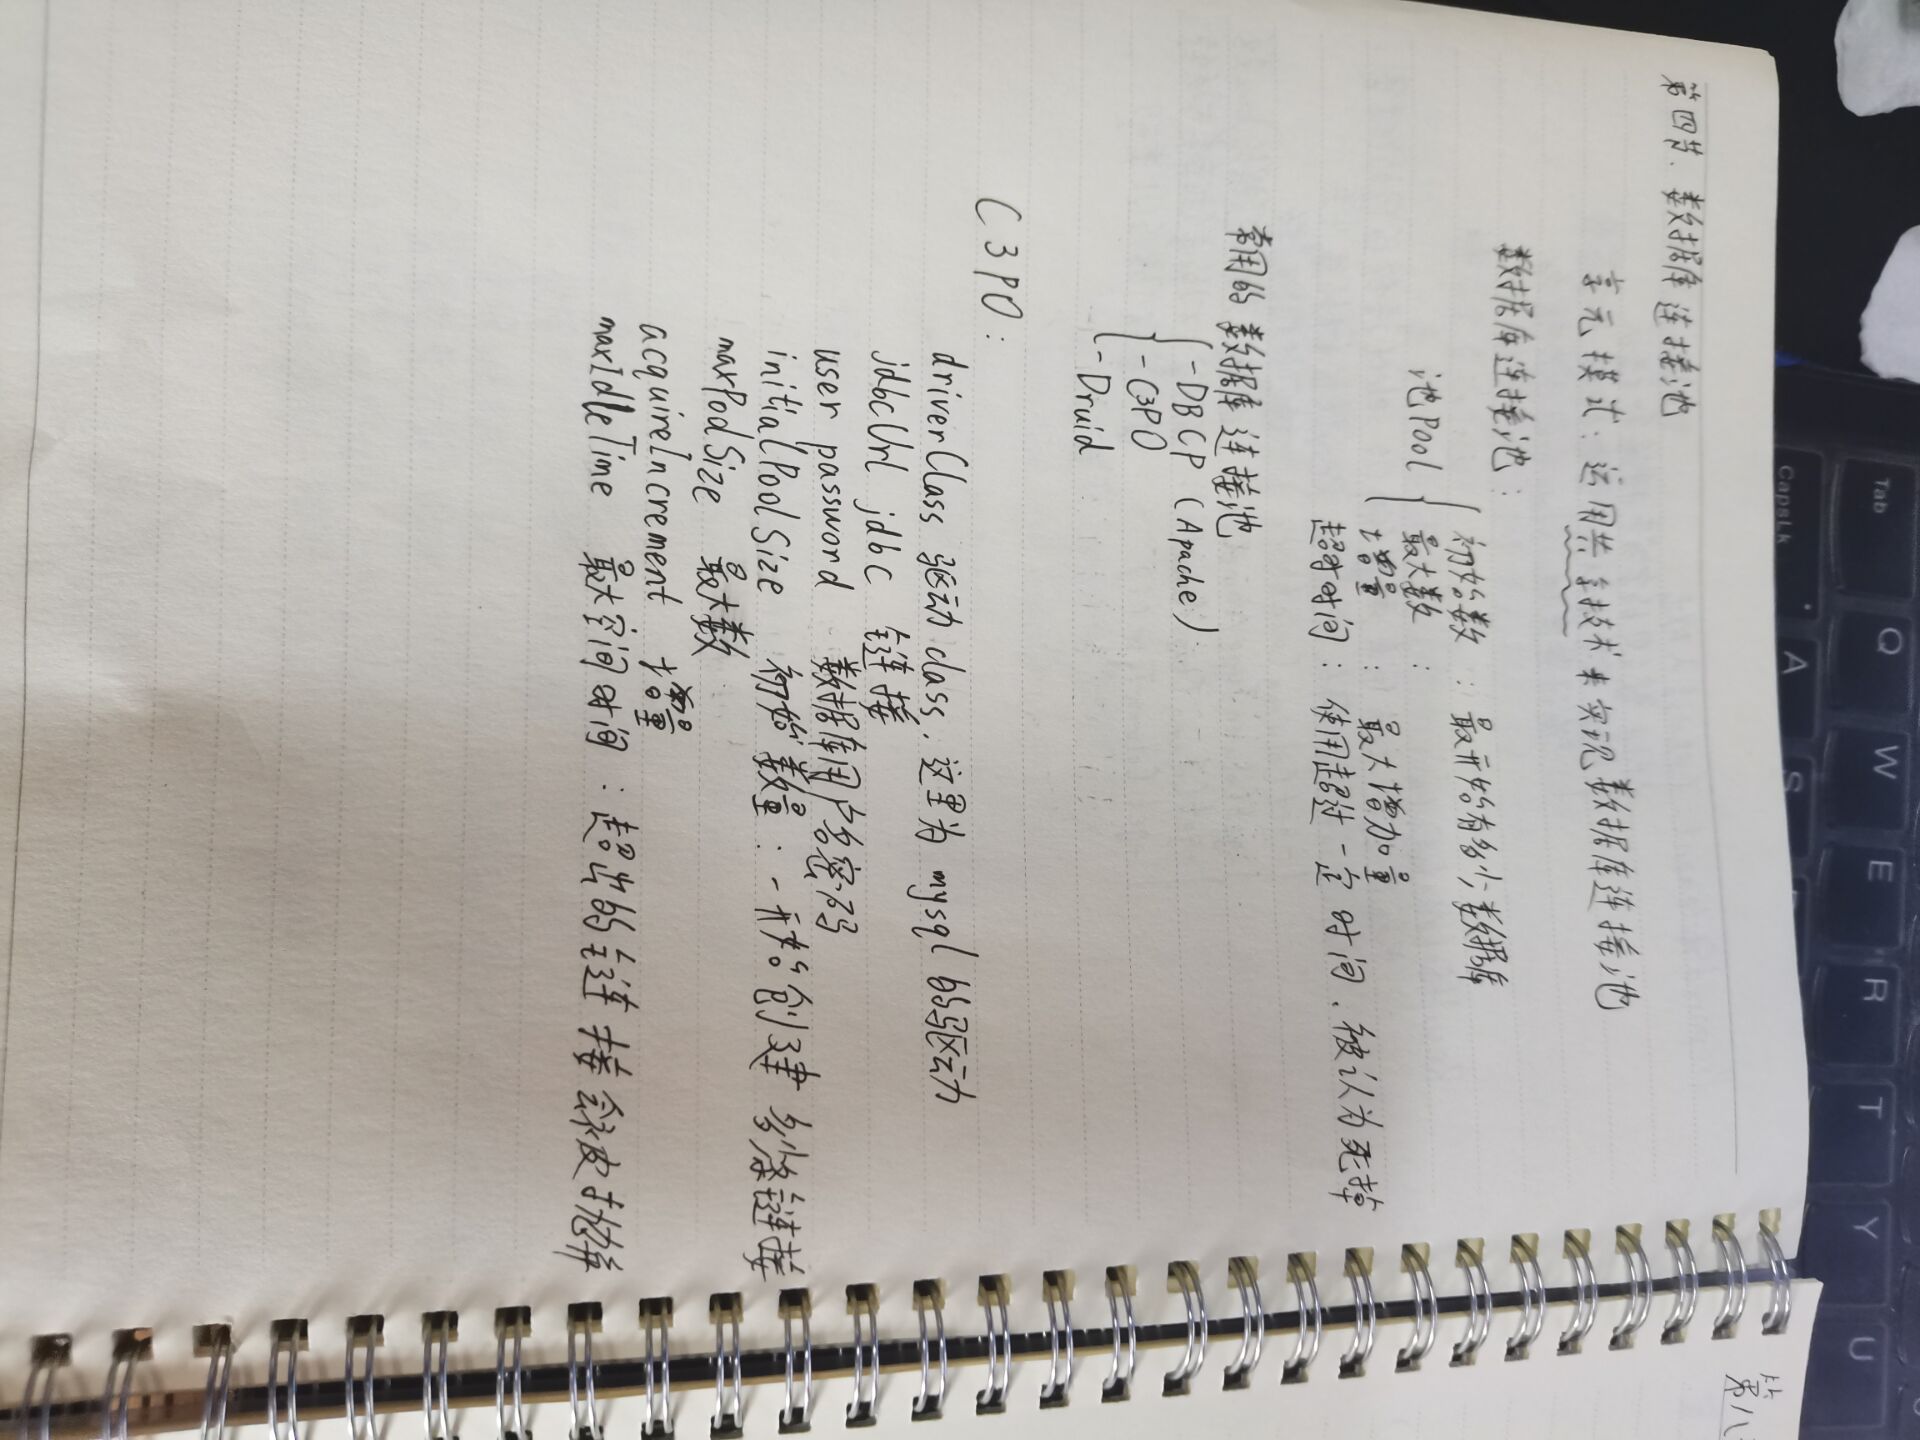 第四节. 数据库连接池
享元模式: 运用共享技术来实现数据库连接池
数据库连接池:
池Pool
初始数 : 最开始有多少数据库
最大数 :
增量 : 最大增加量
超时时间 : 使用超过一定时间. 被认为死掉
常用的数据库连接池
-DBCP (Apache)
-C3PO
-Druid
C3PO:
driverClass 驱动class. 这里为 mysql 的驱动
jdbcUrl jdbc 链接
user password 数据库用户名密码
initialPoolSize 初始数量: 一开始创建多少条链接
maxPoolSize 最大数
acquireIncrement 增量
maxIdleTime 最大空闲时间: 超出的链接会被抛弃
第八
Tab
Q
W
E
R
T
Y
U
CapsLk
A
S